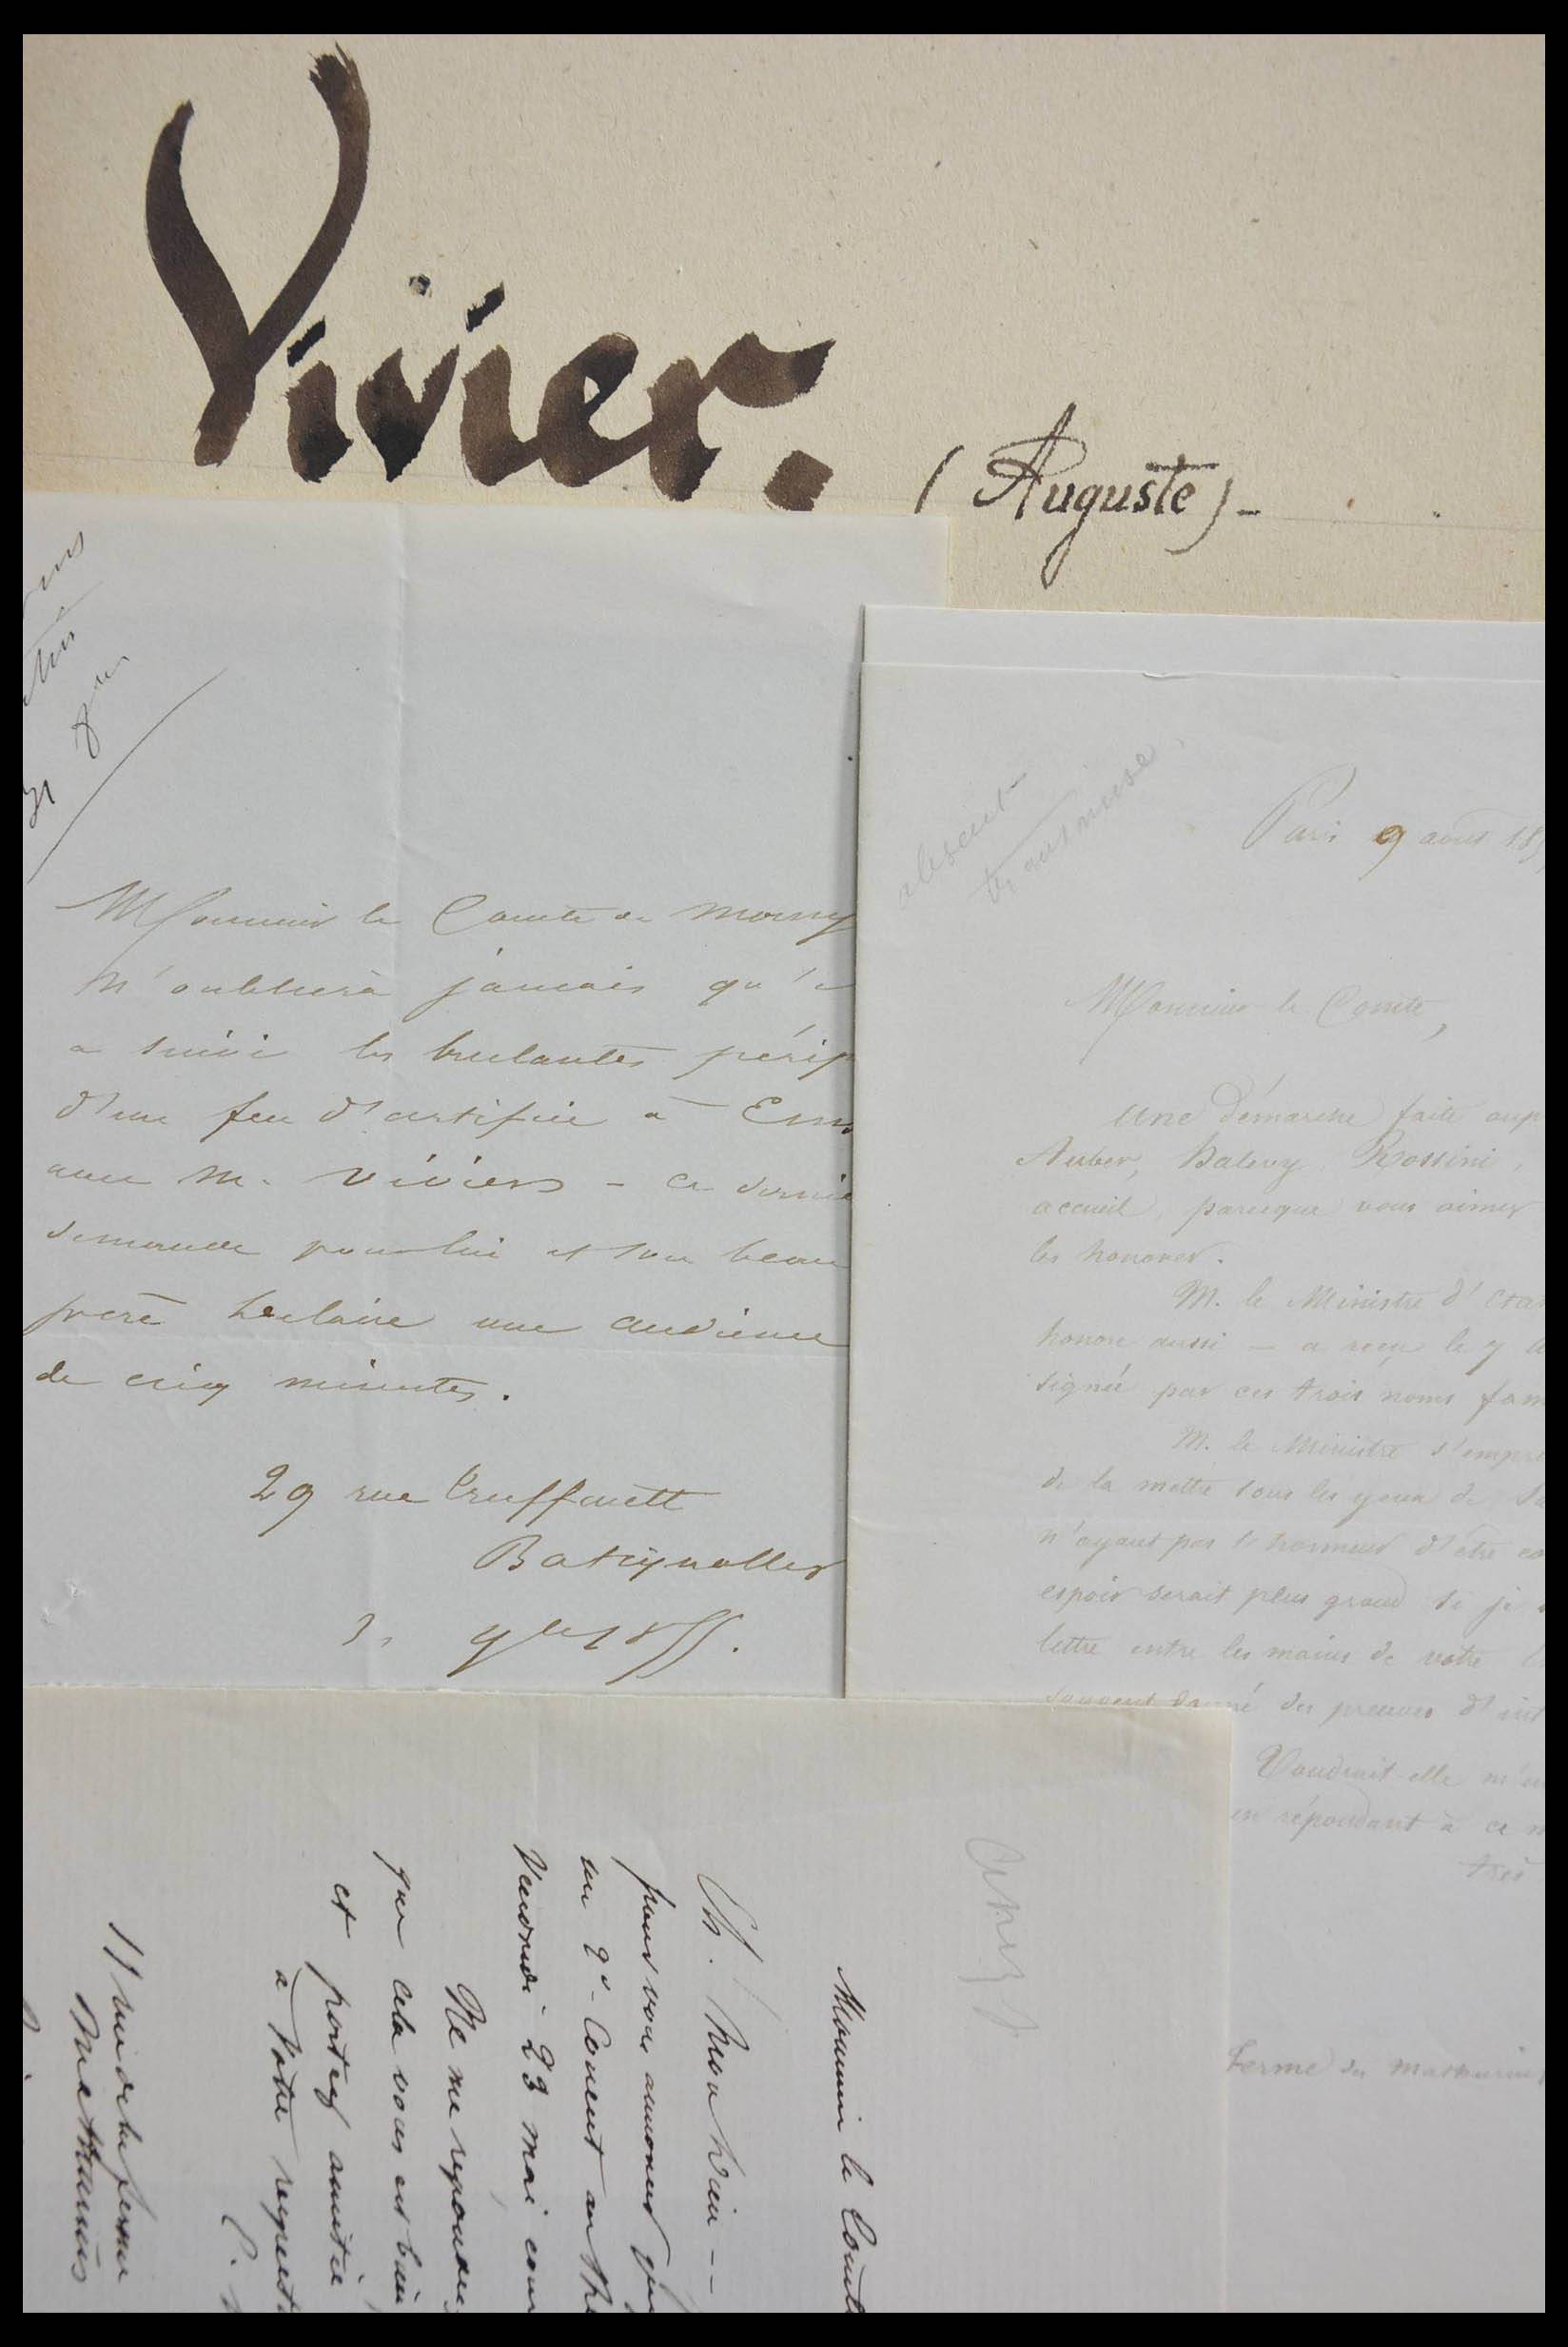 Vivier.
(Auguste)-
Monsieur le Comte de Morny
n'oubliera jamais qu'
a suivi les brulantes périp
d'un feu d'artifice à Ems
avec M. Viviers - ce dernie
demande pour lui et son beau
frère Leclaire une audience
de cinq minutes.
29 rue Truffault
Batignolles
absent
transmise
Paris 9 aout 18
Monsieur le Comte,
Une démarche faite aup
Auber, Halevy, Rossini,
accueil, parceque vous aimez
les honorer.
M. le Ministre d'Etat
honore aussi - a reçu le 7
signée par ces trois noms fam
M. le Ministre s'empre
de la mettre sous les yeux de Sa
n'ayant pas l'honneur d'être co
espoir serait plus grand si je
lettre entre les mains de votre
souvent donné des preuves d'int
Voudrait-elle m'
en répondant à ce
très
ferme des mathurins
Monsieur le Comte
Ah! mon Dieu --
pour vous annoncer que
un 2e Concert au Th
Vendredi 23 mai cour
Ne me répondez
que cela vous est bien
et portez amitié
à votre respect
11 rue de la ferme
Mathurins